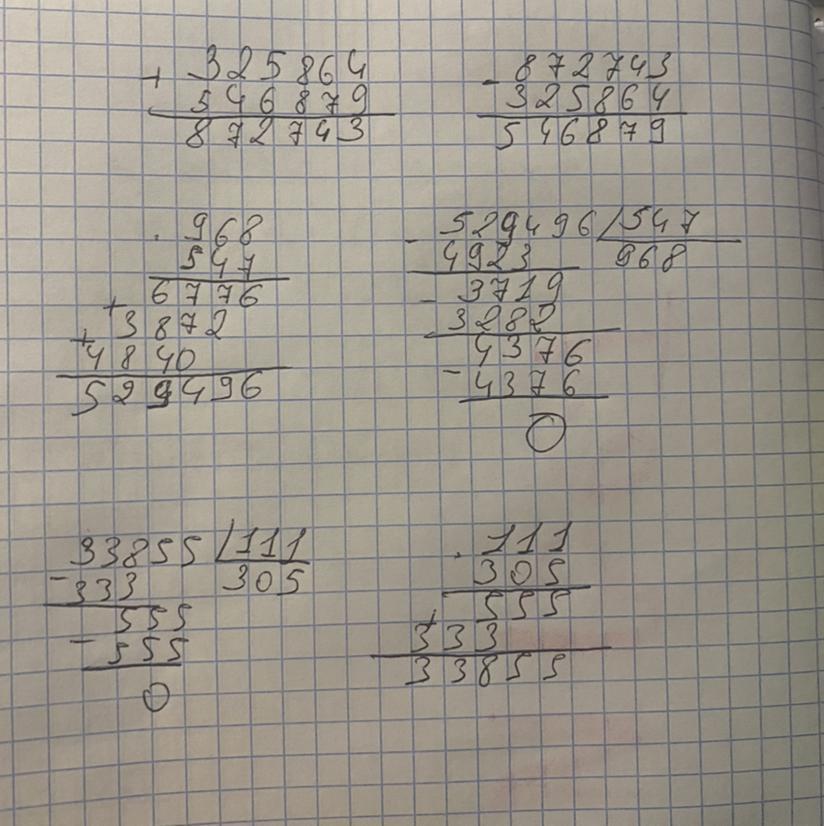 + 325864
546879
872743
- 872743
325864
546879
. 968
547
6776
+ 3872
+ 4840
529496
- 529496 / 547
4923 968
- 3719
3282
4376
- 4376
0
33855 / 111
- 333 305
555
- 555
0
. 111
305
555
+ 333
33855